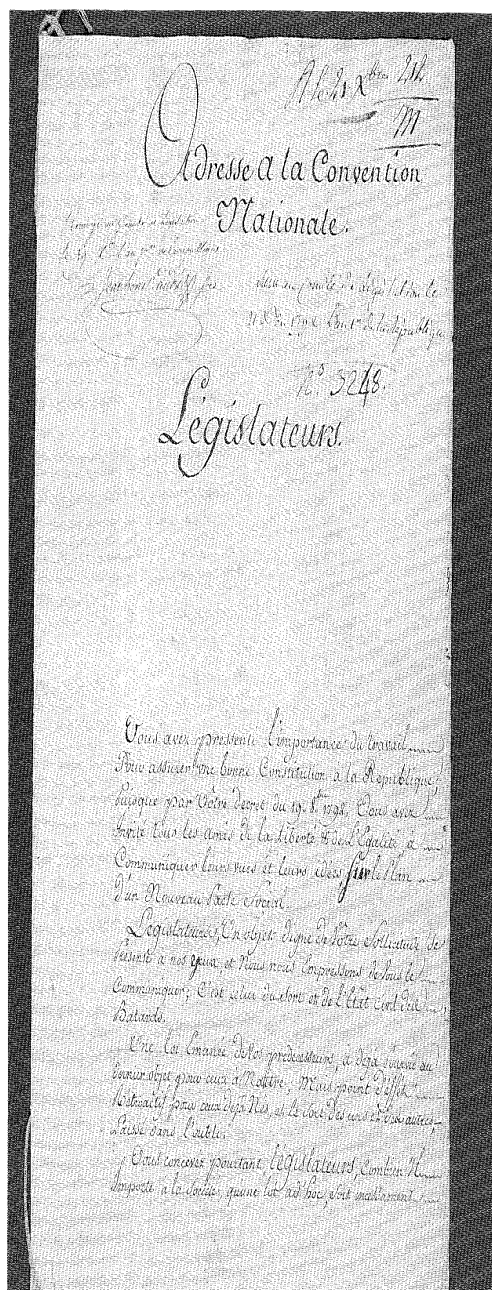 A le 21 Xbre 212
M
Adresse a la Convention
Nationale.
Renvoyé au Comité de Législation
le 19
Reçu au comité de Législation le
21 Xbre 1792 L'an 1er de la République
No. 3248.
Législateurs.
Vous avez pressenti l'importance du travail
Pour assurer une bonne Constitution à la République,
Puisque par Votre Decret du 19. 8bre 1792, Vous avez
Invité tous les Amis de la Liberté & de L'Egalité, à
Communiquer leurs vues et leurs idées sur le Plan
d'un Nouveau Pacte Social.
Législateurs, Un objet digne de Votre Sollicitude se
Présente à nos yeux, et Nous nous Empressons de Vous le
Communiquer; C'est celui du Sort et de l'Etat civil des
Batards.
Une loi Emanée de Vos prédécesseurs, à déja
objet pour ceux à Naître, Mais point d'Effet
Rétroactif pour ceux deja Nés, et le Sort des uns et des autres,
Laissé dans l'oubli.
Vous concevez pourtant, Législateurs, Combien Il
Importe à la Société, qu'une loi ad hoc, soit